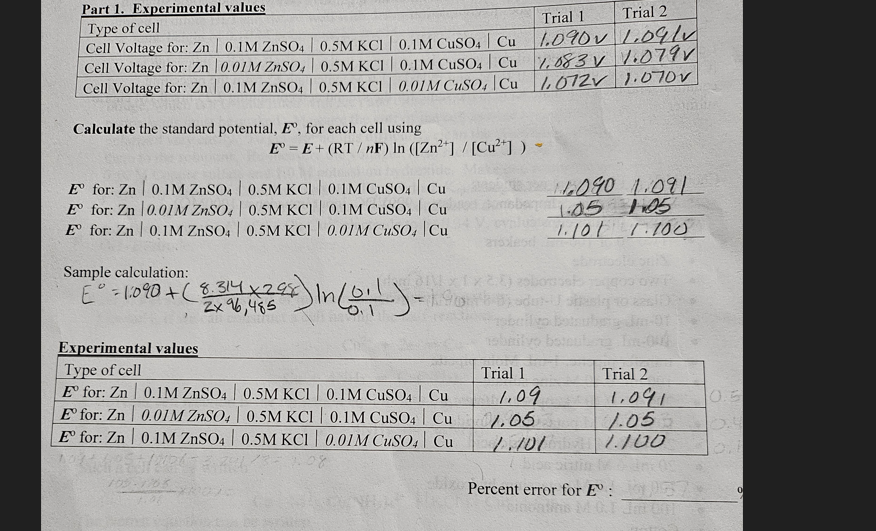 Part 1. Experimental values
Type of cell Trial 1 Trial 2
Cell Voltage for: Zn | 0.1M ZnSO₄ | 0.5M KCl | 0.1M CuSO₄ | Cu 1.090v 1.091v
Cell Voltage for: Zn | 0.01M ZnSO₄ | 0.5M KCl | 0.1M CuSO₄ | Cu 1.083v 1.079v
Cell Voltage for: Zn | 0.1M ZnSO₄ | 0.5M KCl | 0.01M CuSO₄ | Cu 1.072v 1.070v
Calculate the standard potential, Eº, for each cell using
Eº = E + (RT / nF) ln ([Zn²⁺] / [Cu²⁺] )
Eº for: Zn | 0.1M ZnSO₄ | 0.5M KCl | 0.1M CuSO₄ | Cu 1.090 1.091
Eº for: Zn | 0.01M ZnSO₄ | 0.5M KCl | 0.1M CuSO₄ | Cu 1.05 1.05
Eº for: Zn | 0.1M ZnSO₄ | 0.5M KCl | 0.01M CuSO₄ | Cu 1.101 1.100
Sample calculation:
E° = 1.090 + (8.314 x 298 / 2 x 96,485) ln (0.1 / 0.1) =
Experimental values
Type of cell Trial 1 Trial 2
Eº for: Zn | 0.1M ZnSO₄ | 0.5M KCl | 0.1M CuSO₄ | Cu 1.09 1.091
Eº for: Zn | 0.01M ZnSO₄ | 0.5M KCl | 0.1M CuSO₄ | Cu 1.05 1.05
Eº for: Zn | 0.1M ZnSO₄ | 0.5M KCl | 0.01M CuSO₄ | Cu 1.101 1.100
Percent error for Eº :